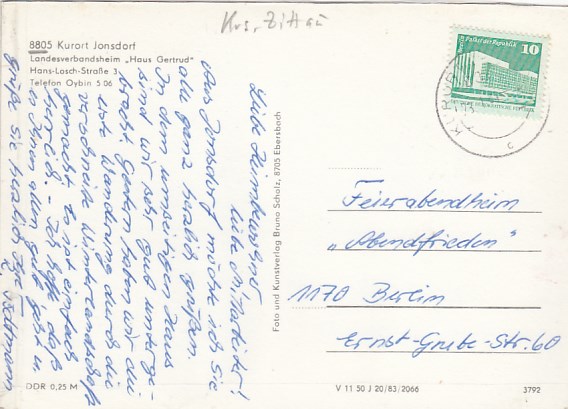 Krs. Zittau
8805 Kurort Jonsdorf
Landesverbandsheim „Haus Gertrud"
Hans-Losch-Straße 3
Telefon Oybin 5 06
Berlin · Palast der Republik
10
Liebe Heimbewohner
liebe Mitarbeiter!
Aus Jonsdorf möchte ich Sie
alle ganz herzlich grüßen.
In dem umseitigen Haus
sind wir sehr gut unterge-
bracht. Gestern haben wir die
erste Wanderung durch die
verschneite Winterlandschaft
gemacht. Es ist einfach
herrlich. - Ich hoffe, daß
es Ihnen allen gut geht u.
grüße Sie herzlich Ihre
Foto und Kunstverlag Bruno Scholz, 8705 Ebersbach
Feierabendheim
„Abendfrieden"
1170 Berlin
Ernst-Grube-Str. 60
DDR 0,25 M
V 11 50 J 20/83/2066
3792